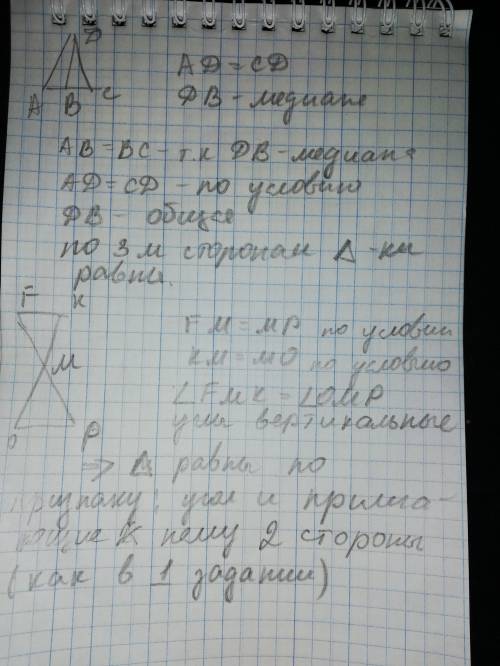 D
A B C
AD = CD
DB - медиана
AB = BC - т.к DB - медиана
AD = CD - по условию
DB - общая
по 3м сторонам Δ-ки
равны.
F K
M
O P
FM = MP по условии
KM = MO по условию
∠FMK = ∠OMP
углы вертикальные
=> Δ равны по
признаку: угол и прилега-
ющие к нему 2 стороны
(как в 1 задании)